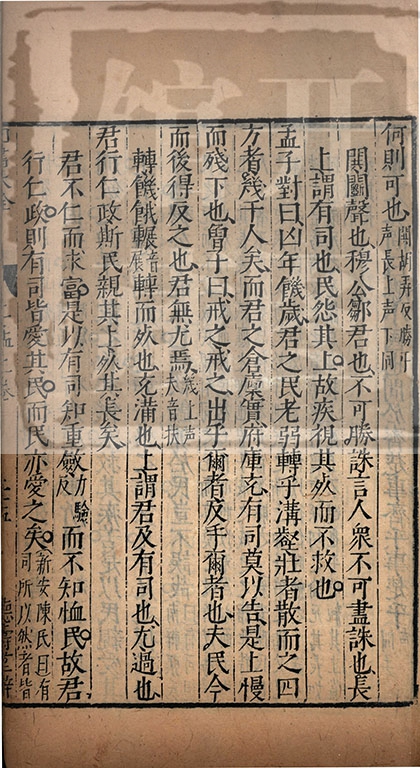 何則可也閧胡弄反勝平聲長上聲下同
閧鬬聲也穆公鄒君也不可勝誅言人衆不可盡誅也長
上謂有司也民怨其上故疾視其死而不救也
孟子對曰凶年饑歲君之民老弱轉乎溝壑壯者散而之四
方者幾千人矣而君之倉廩實府庫充有司莫以告是上慢
而殘下也曾子曰戒之戒之出乎爾者反乎爾者也夫民今
而後得反之也君無尤焉幾上聲夫音扶
轉饑餓輾音展轉而死也充滿也上謂君及有司也尤過也
君行仁政斯民親其上死其長矣
君不仁而求富是以有司知重斂力驗反而不知恤民故君
行仁政則有司皆愛其民而民亦愛之矣新安陳氏曰有司所以然者皆